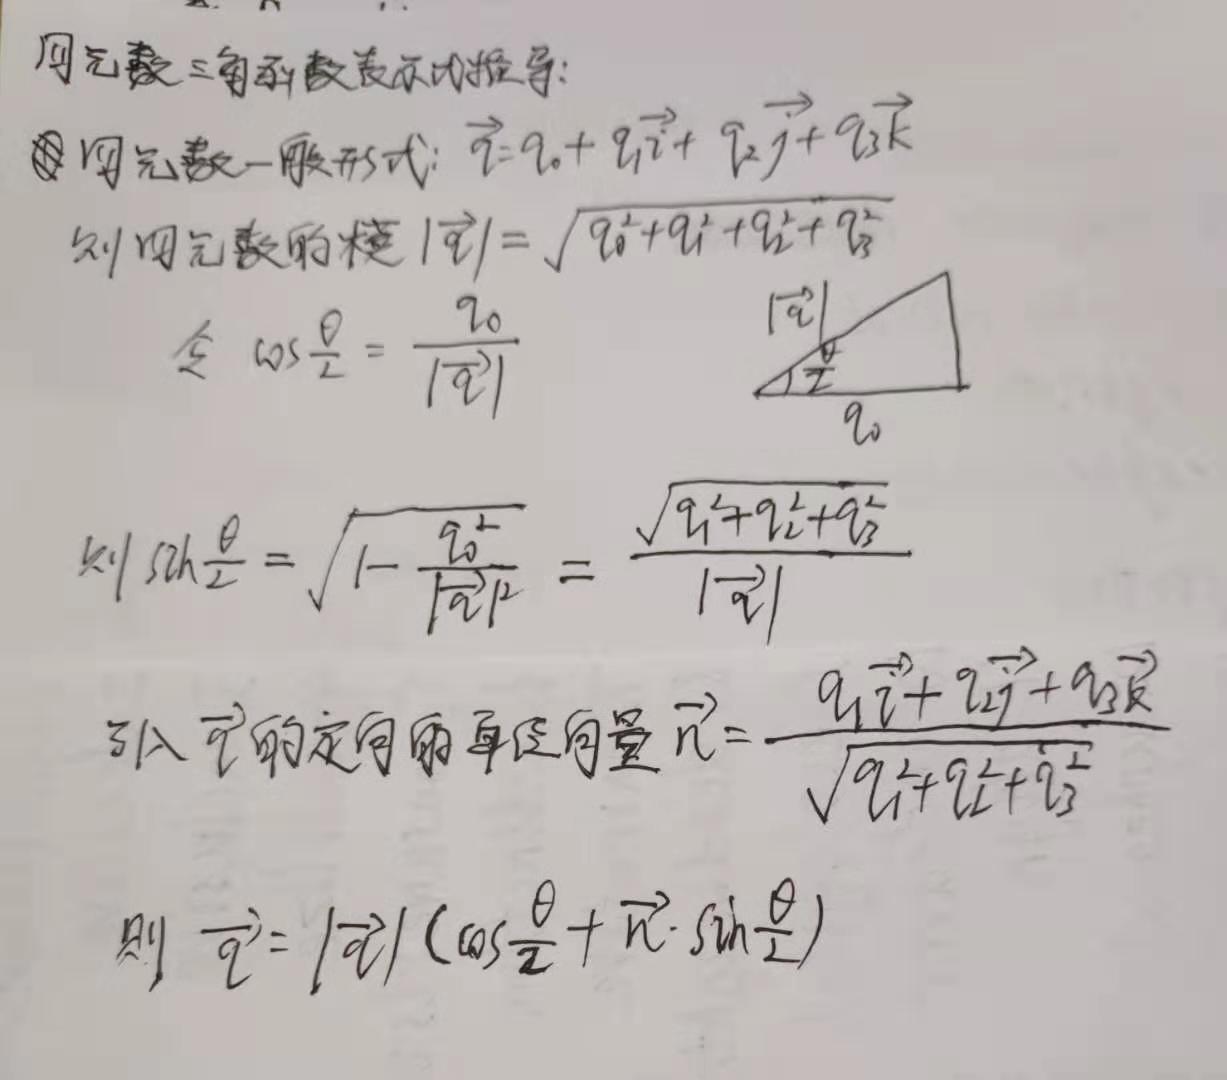 四元数三角函数表示的推导:
四元数一般形式: $\vec{q}=q_0+q_1\vec{i}+q_2\vec{j}+q_3\vec{k}$
则四元数的模 $|\vec{q}|=\sqrt{q_0^2+q_1^2+q_2^2+q_3^2}$
令 $\cos\frac{\theta}{2}=\frac{q_0}{|\vec{q}|}$
$|\vec{q}|$
$\frac{\theta}{2}$
$q_0$
则 $\sin\frac{\theta}{2}=\sqrt{1-\frac{q_0^2}{|\vec{q}|^2}}=\frac{\sqrt{q_1^2+q_2^2+q_3^2}}{|\vec{q}|}$
引入 $\vec{q}$ 的定向的单位向量 $\vec{n}=\frac{q_1\vec{i}+q_2\vec{j}+q_3\vec{k}}{\sqrt{q_1^2+q_2^2+q_3^2}}$
则 $\vec{q}=|\vec{q}|(\cos\frac{\theta}{2}+\vec{n}\cdot\sin\frac{\theta}{2})$